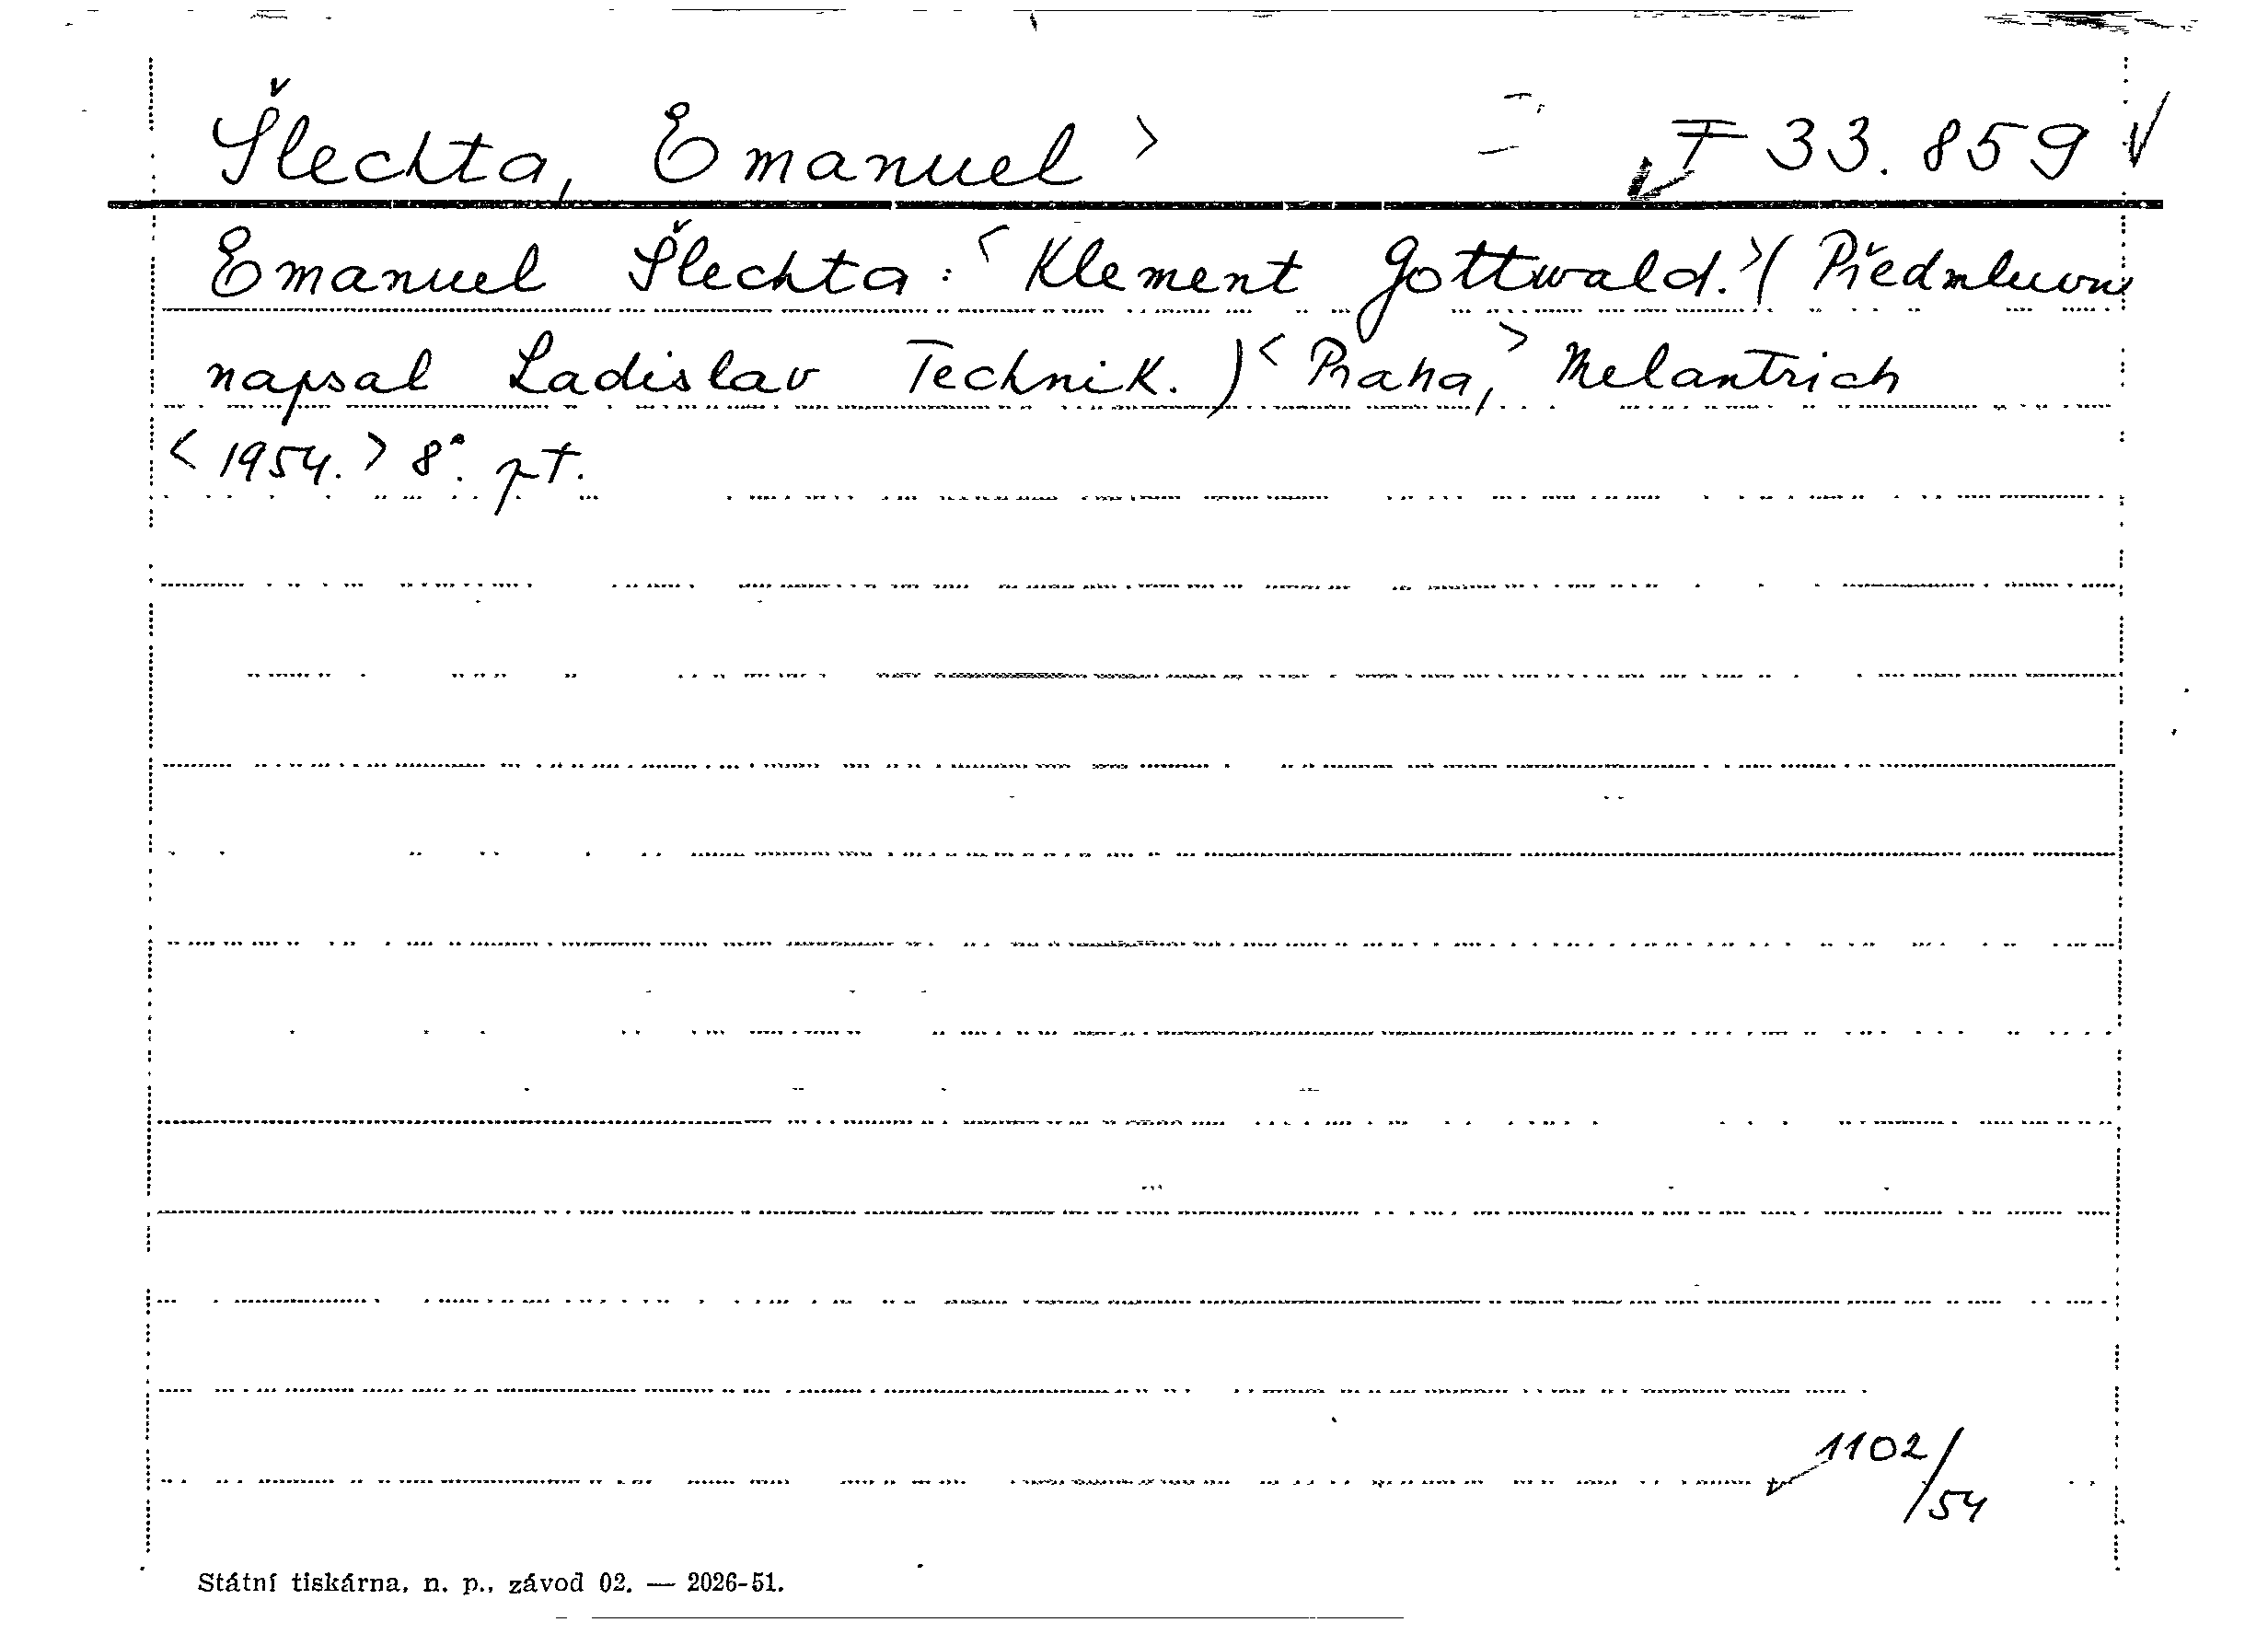 Šlechta, Emanuel > F 33.859
Emanuel Šlechta: <Klement Gottwald.> (Předmluvu
napsal Ladislav Technik.) <Praha,> Melantrich
<1954.> 8°. pt.
1102/54
Státní tiskárna, n. p., závod 02. — 2026-51.